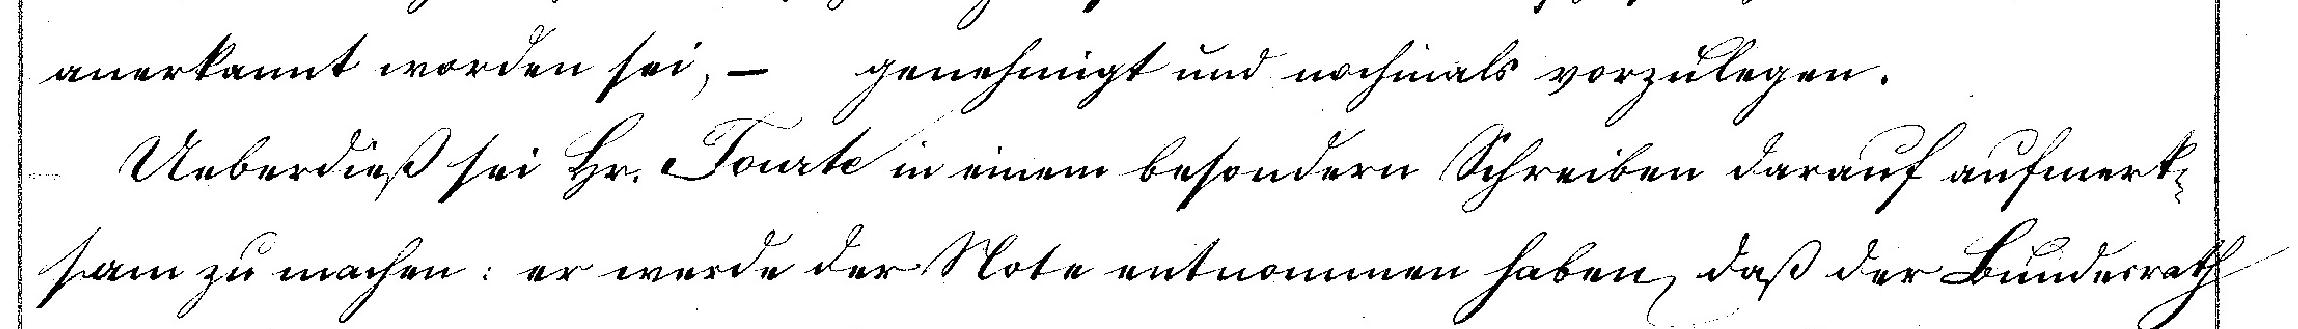 anerkannt worden sei, – genehmigt und nochmals vorzulegen.
Ueberdieß sei Hr. Tourte in einem besondern Schreiben darauf aufmerk-
sam zu machen: er werde der Note entnommen haben, daß der Bundesrath